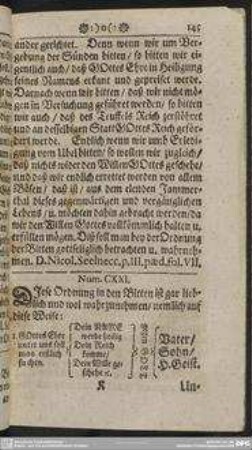 145
ander gerichtet. Denn wenn wir um Ver-
gebung der Sünden bitten / so bitten wir ei-
gentlich auch / daß GOttes Ehre in Heiligung
seines Namens erkant und gepreiset werde.
Darnach wenn wir bitten / daß wir nicht mö-
gen in Versuchung geführet werden / so bitten
wir auch / daß des Teuffels Reich zerstöhret
und an desselbigen Statt GOttes Reich geför-
dert werde. Endlich wenn wir umb Erledi-
gung vom Übel bitten / so wollen wir zugleich /
daß nichts wider den Willen GOttes geschehe /
und daß wir endlich errettet werden von allem
Bösen / daß ist / aus dem elenden Jammer-
thal dieses gegenwärtigen und vergänglichen
Lebens / u. möchten dahin gebracht werden / da
wir den Willen GOttes vollkömlich halten u.
erfüllen mögen. Diß soll man bey der Ordnung
der Bitten gottseliglich betrachten u. wahrneh-
men. D. Nicol. Selnecc. p. III. pæd. fol. VII.
Num. CXXI.
Diese Ordnung in den Bitten ist gar lieb-
lich und wol wahrzunehmen / nemlich auf
diese Weise:
1. GOttes Ehre
unter uns soll
man erstlich
suchen.
Dein NAME
werde heilig
Dein Reich
komme /
Dein Wille ge-
schehe ꝛc.
Vater /
Sohn /
H. Geist.
K
Un-